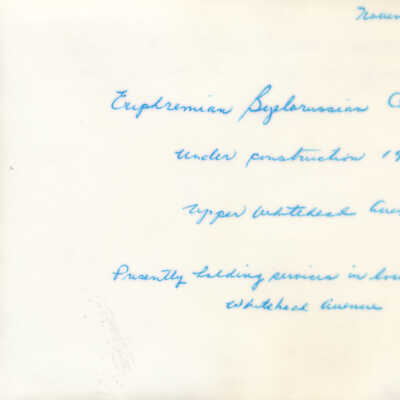 Novem
Euphremian Byelorussian C
under construction 19
upper Whitehead Ave
Presently holding services in
Whitehead Avenue